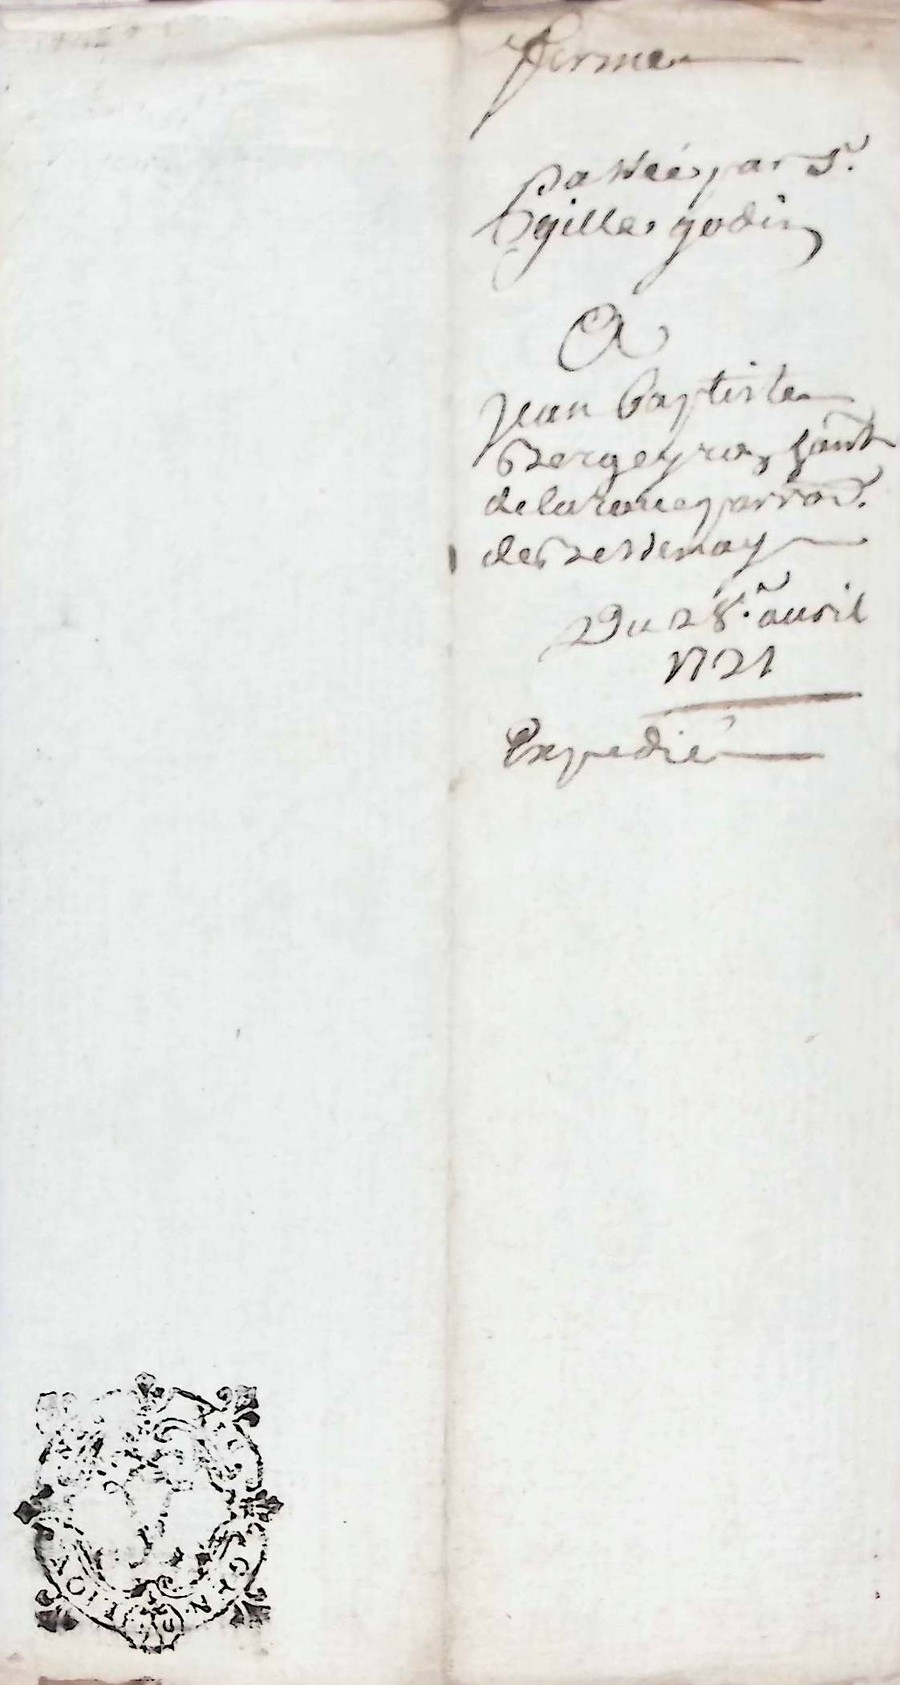 ferme
Passée par Sr.
Gille godin
A
Jean Baptiste
Bergeyron hant
de la parroi.
de Bessenay
Du 28e. auril
1721
Expedié